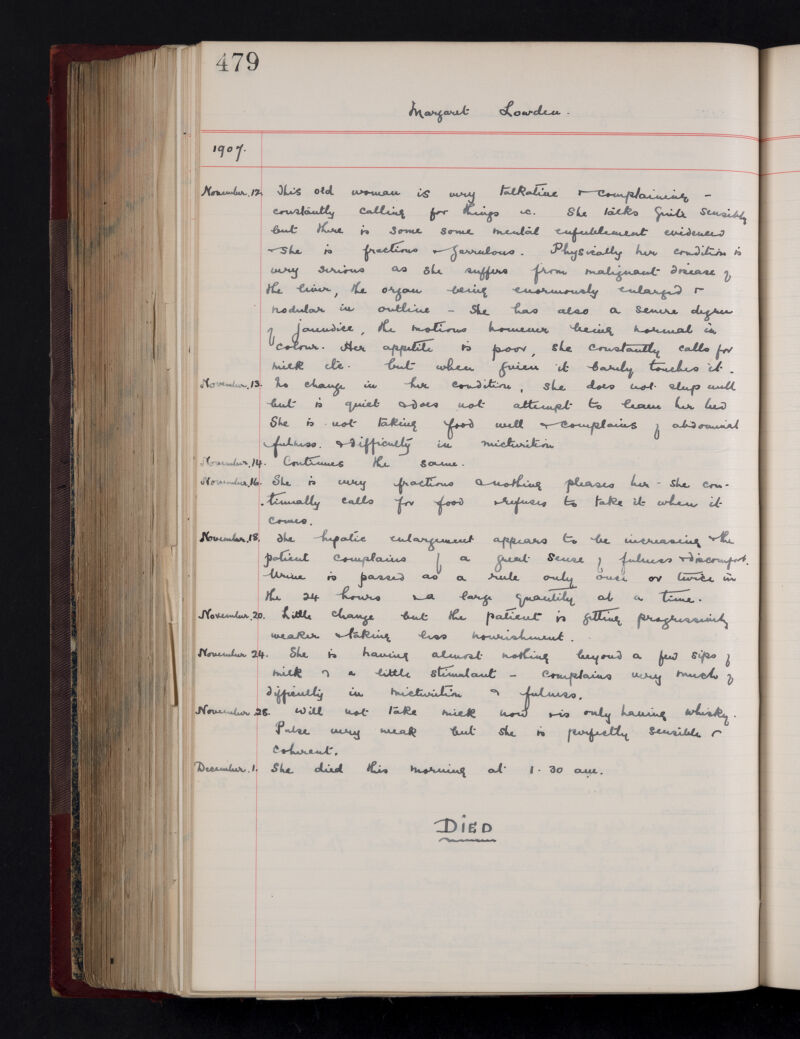 479
Margaret Lowden.
1907.
November. 12. This old woman is very talkative & complaining -
constantly calling for things &c. She talks quite sensibly
but there is some some mental enfeeblement evidenced
& she is fractious & garrulous. Physically her condition is
very serious as she suffers from malignant disease of
the liver, the organ being enormously enlarged &
nodular in outline - She has also a severe degree
of jaundice, the motions however being normal in
colour. Her appetite is poor, she constantly calls for
milk etc. but when given it barely touches it.
November. 13. No change in her condition, she does not sleep well
but is quiet & does not attempt to leave her bed
She is not taking food well & complains of abdominal
fulness. & difficulty in micturition
November. 14. Continues the same.
November. 16. She is very fractious & nothing pleases her - she con-
tinually calls for food & refuses to take it when it
comes.
November. 18. The hepatic enlargement appears to be increasing & the
patient complains of a great sense of fulness & discomfort.
Urine is passed as a rule only once or twice in
the 24 hours & a large quantity at a time.
November. 20. Little change but the patient is getting progressively
weaker & taking less nourishment.
November 24. She is having almost nothing beyond a few sips of
milk & a little stimulant - complains very much of
difficulty in micturition & fulness.
November 28. Will not take milk now & is only having whisky.
Pulse very weak but she is perfectly sensible &
coherent.
December. 1. She died this morning at 1.30 am.
DIED